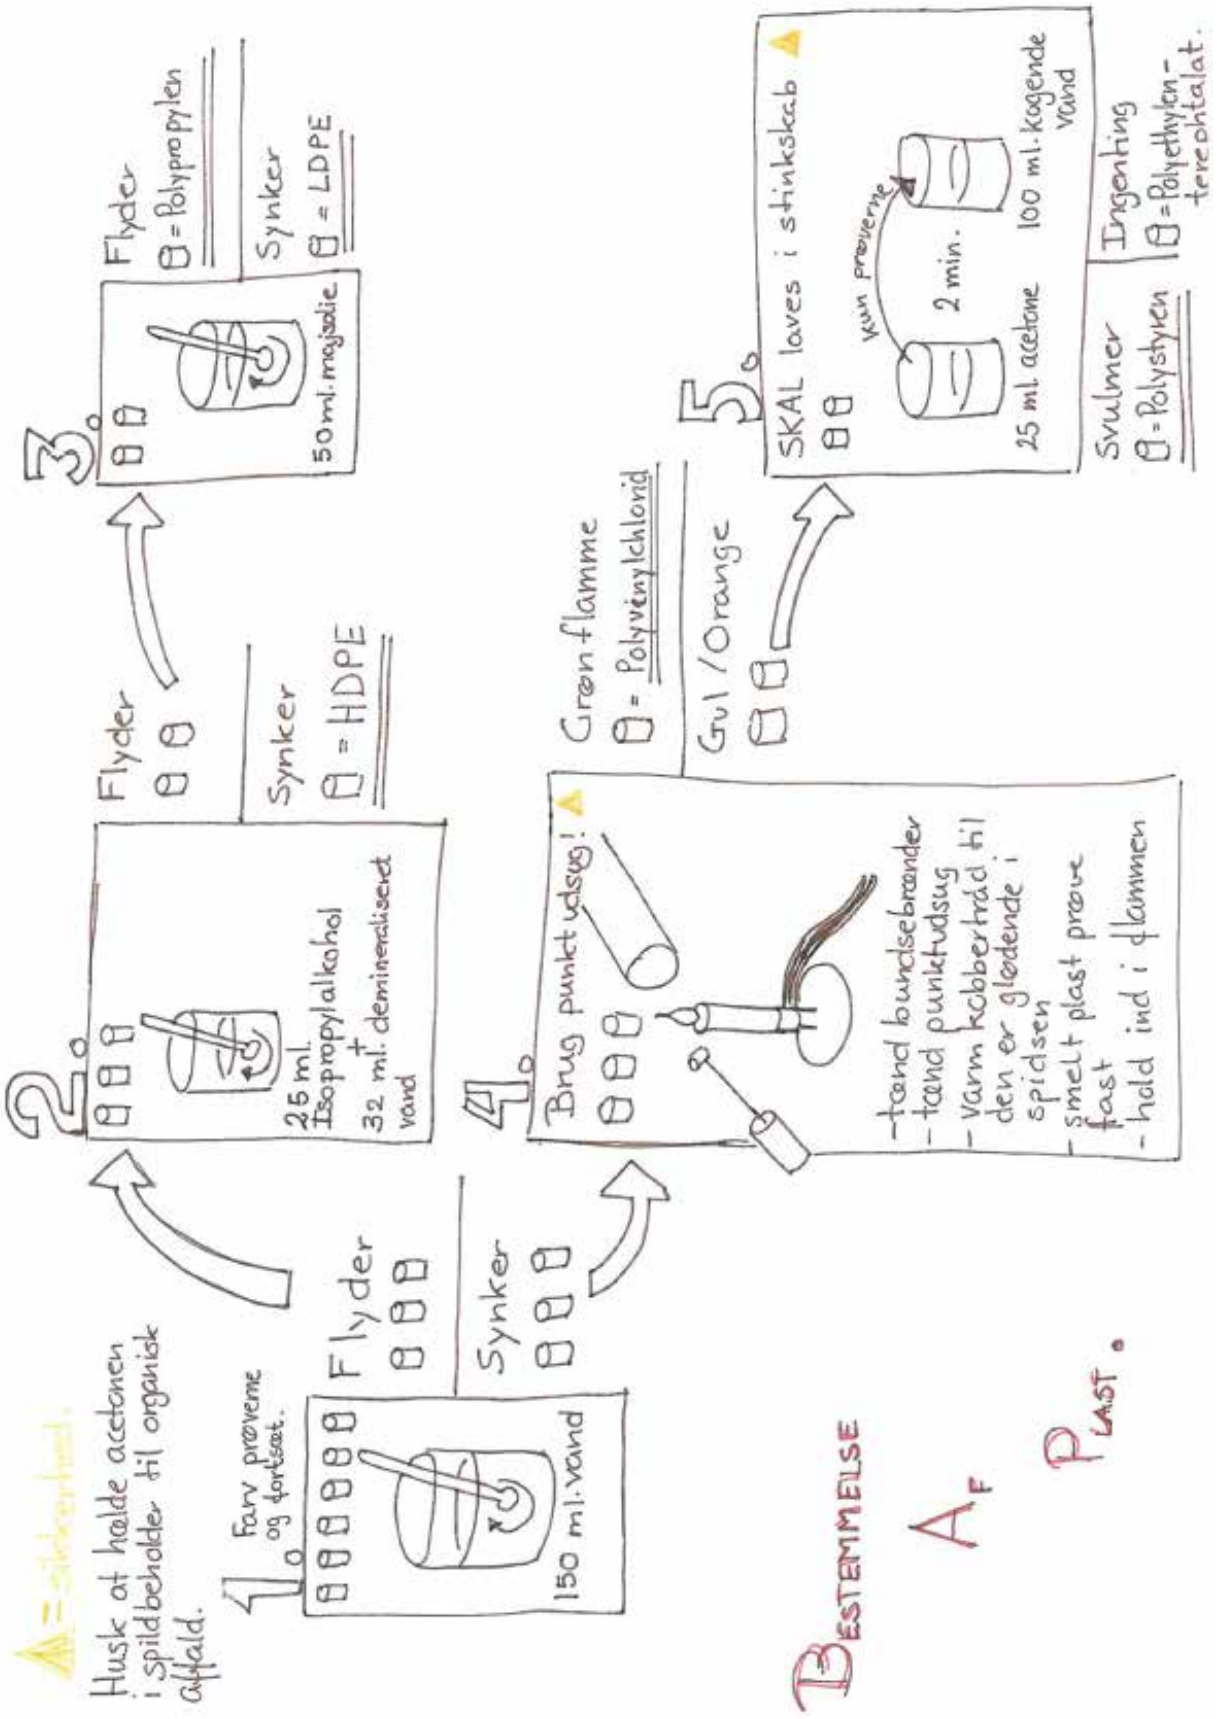 = sikkerhed.
Husk at hælde acetonen
i spildbeholder til organisk
affald.
1.
Farv prøverne
og fortsæt.
150 ml. vand
Flyder
Synker
2.
25 ml.
Isopropylalkohol
+
32 ml. demineraliseret
vand
Flyder
Synker
= HDPE
3.
50 ml. majsolie
Flyder
= Polypropylen
Synker
= LDPE
4.
Brug punktudsug!
- tænd bundsebrænder
- tænd punktudsug
- varm kobbertråd til
den er glødende i
spidsen
- smelt plast prøve
fast
- hold ind i flammen
Grøn flamme
= Polyvinylchlorid
Gul / Orange
5.
SKAL laves i stinkskab
kun prøverne
2 min.
25 ml. acetone
100 ml. kogende
vand
Svulmer
= Polystyren
Ingenting
= Polyethylen-
tereohtalat.
BESTEMMELSE
AF
PLAST.